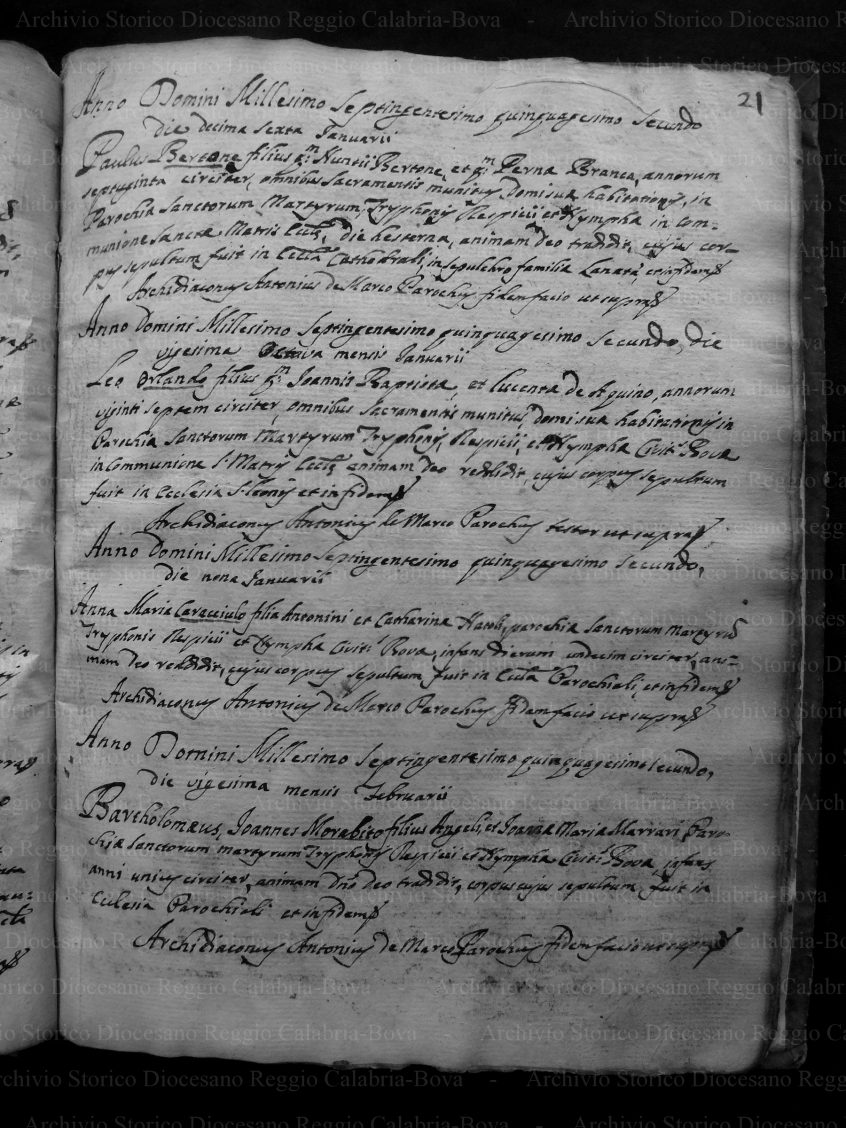 21
Anno Domini Millesimo Septingentesimo quinquagesimo secundo
die decima sexta Januarii
Paulus Bertone filius qm Nuntii Bertone, et qm Perna Branca, annorum
septuginta circiter, omnibus Sacramentis munitus Domi suæ habitationis, in
Parochia Sanctorum Martyrum, Tryphonis Respicii et Nympha in Com-
munione Sanctæ Matris Eccls, die hesterna, animam Deo tradidit, cujus cor-
pus sepultum fuit in Eccla Cathedrali, in sepulchro familia Lanata, et in fidem
Archidiaconus Antonius de Marco Parochus fidem facio ut supra
Anno Domini Millesimo Septingentesimo quinquagesimo secundo, die
vigesima Octava mensis Januarii
Leo Orlando filius qm Joannis Baptista, et Lucenta de Aquino, annorum
viginti septem circiter, omnibus Sacramentis munitus, domi suæ habitationis in
Parochia Sanctorum Martyrum Tryphonis, Respicii, et Nympha Civits Bovæ
in Communione S. Matris Eccls animam Deo reddidit, cujus corpus sepultum
fuit in Ecclesia S. Leonis et in fidem
Archidiaconus Antonius de Marco Parochus testor ut supra
Anno Domini Millesimo Septingentesimo quinquagesimo secundo,
die nona Januarii
Anna Maria Caracciulo filia Antonini et Catharina Natoli, parochia Sanctorum Martyrum
Tryphonis Respicii et Nympha Civits Bova, infans dierum undecim circiter, ani-
mam Deo reddidit, cujus corpus sepultum fuit in Eccla Parochiali, et in fidem
Archidiaconus Antonius de Marco Parochus fidem facio ut supra
Anno Domini Millesimo Septingentesimo quinquagesimo secundo,
die vigesima mensis Februarii
Bartholomæus, Joannes Morabito filius Angeli, et Joannæ Maria Marrari Paro-
chiæ Sanctorum martyrum Tryphonis Respicii et Nympha Civits Bova, infans
anni unius circiter, animam Dno Deo tradidit, corpus cujus sepultum fuit in
Ecclesia Parochiali et in fidem
Archidiaconus Antonius de Marco Parochus fidem facio ut supra